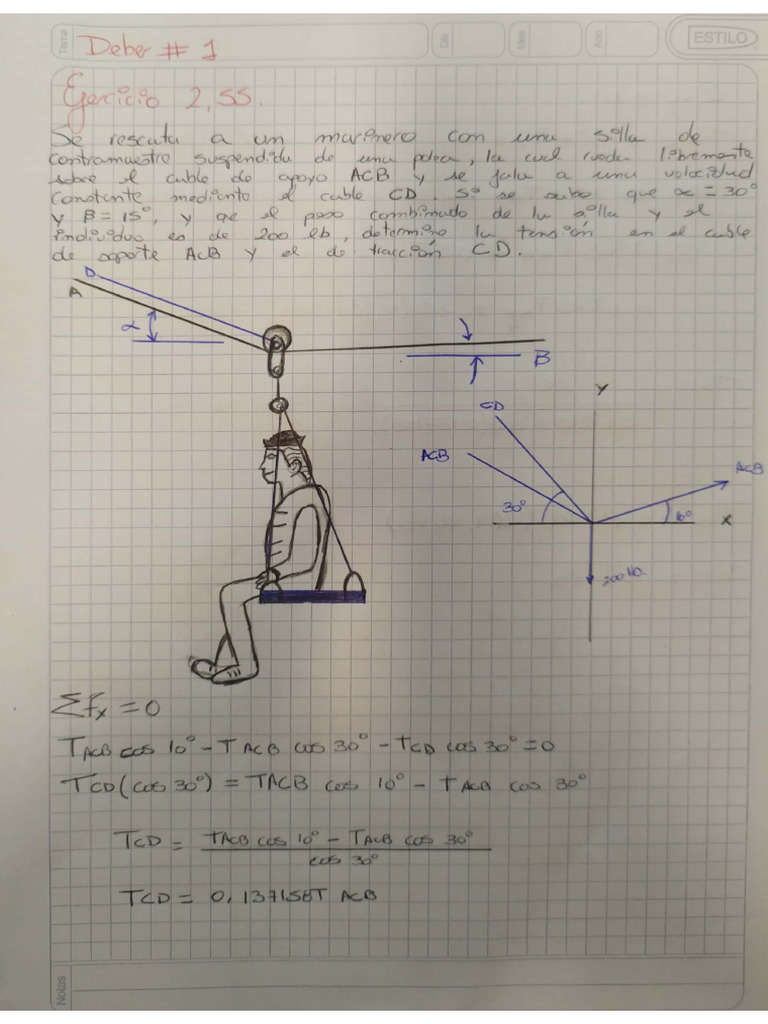 Tema
Deber # 1
Día
Mes
Año
ESTILO
Ejercicio 2,55.
Se rescata a un marinero con una silla de
contramuestre suspendida de una polea, la cual rueda libremente
sobre el cable de apoyo ACB y se jala a una velocidad
constante mediante el cable CD. Si se sabe que α = 30°
y β = 15°, y que el peso combinado de la silla y el
individuo es de 200 lb, determine la tensión en el cable
de soporte ACB y el de tracción CD.
D
A
α
B
Y
CD
ACB
ACB
30°
X
200
ΣFx = 0
TACB cos 10° - TACB cos 30° - TCD cos 30° = 0
TCD (cos 30°) = TACB cos 10° - TACB cos 30°
TCD = TACB cos 10° - TACB cos 30°
cos 30°
TCD = 0,137158T ACB
Notas